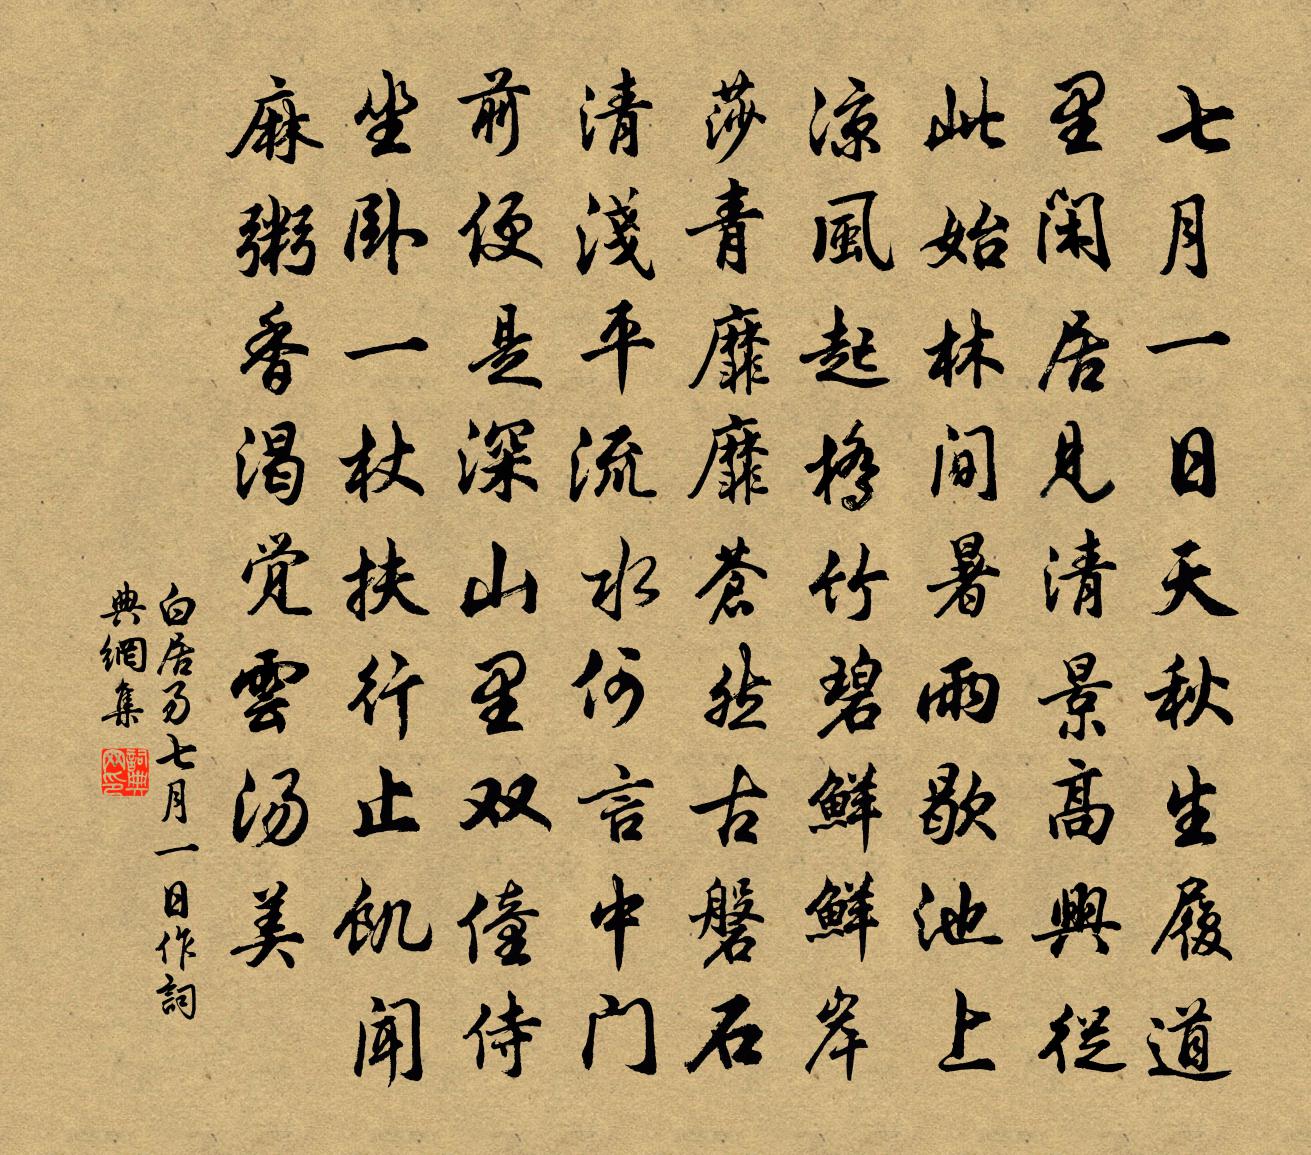 七月一日天秋生履道
里闲居見清景高興從
此始林間暑雨歇池上
凉風起橋竹碧鮮鮮岸
莎青靡靡蒼然古磐石
清淺平流水何言中门
前便是深山里双僮侍
坐卧一杖扶行止飢闻
麻粥香渴觉雲汤美
白居易七月一日作詞
典網集
詞典网印